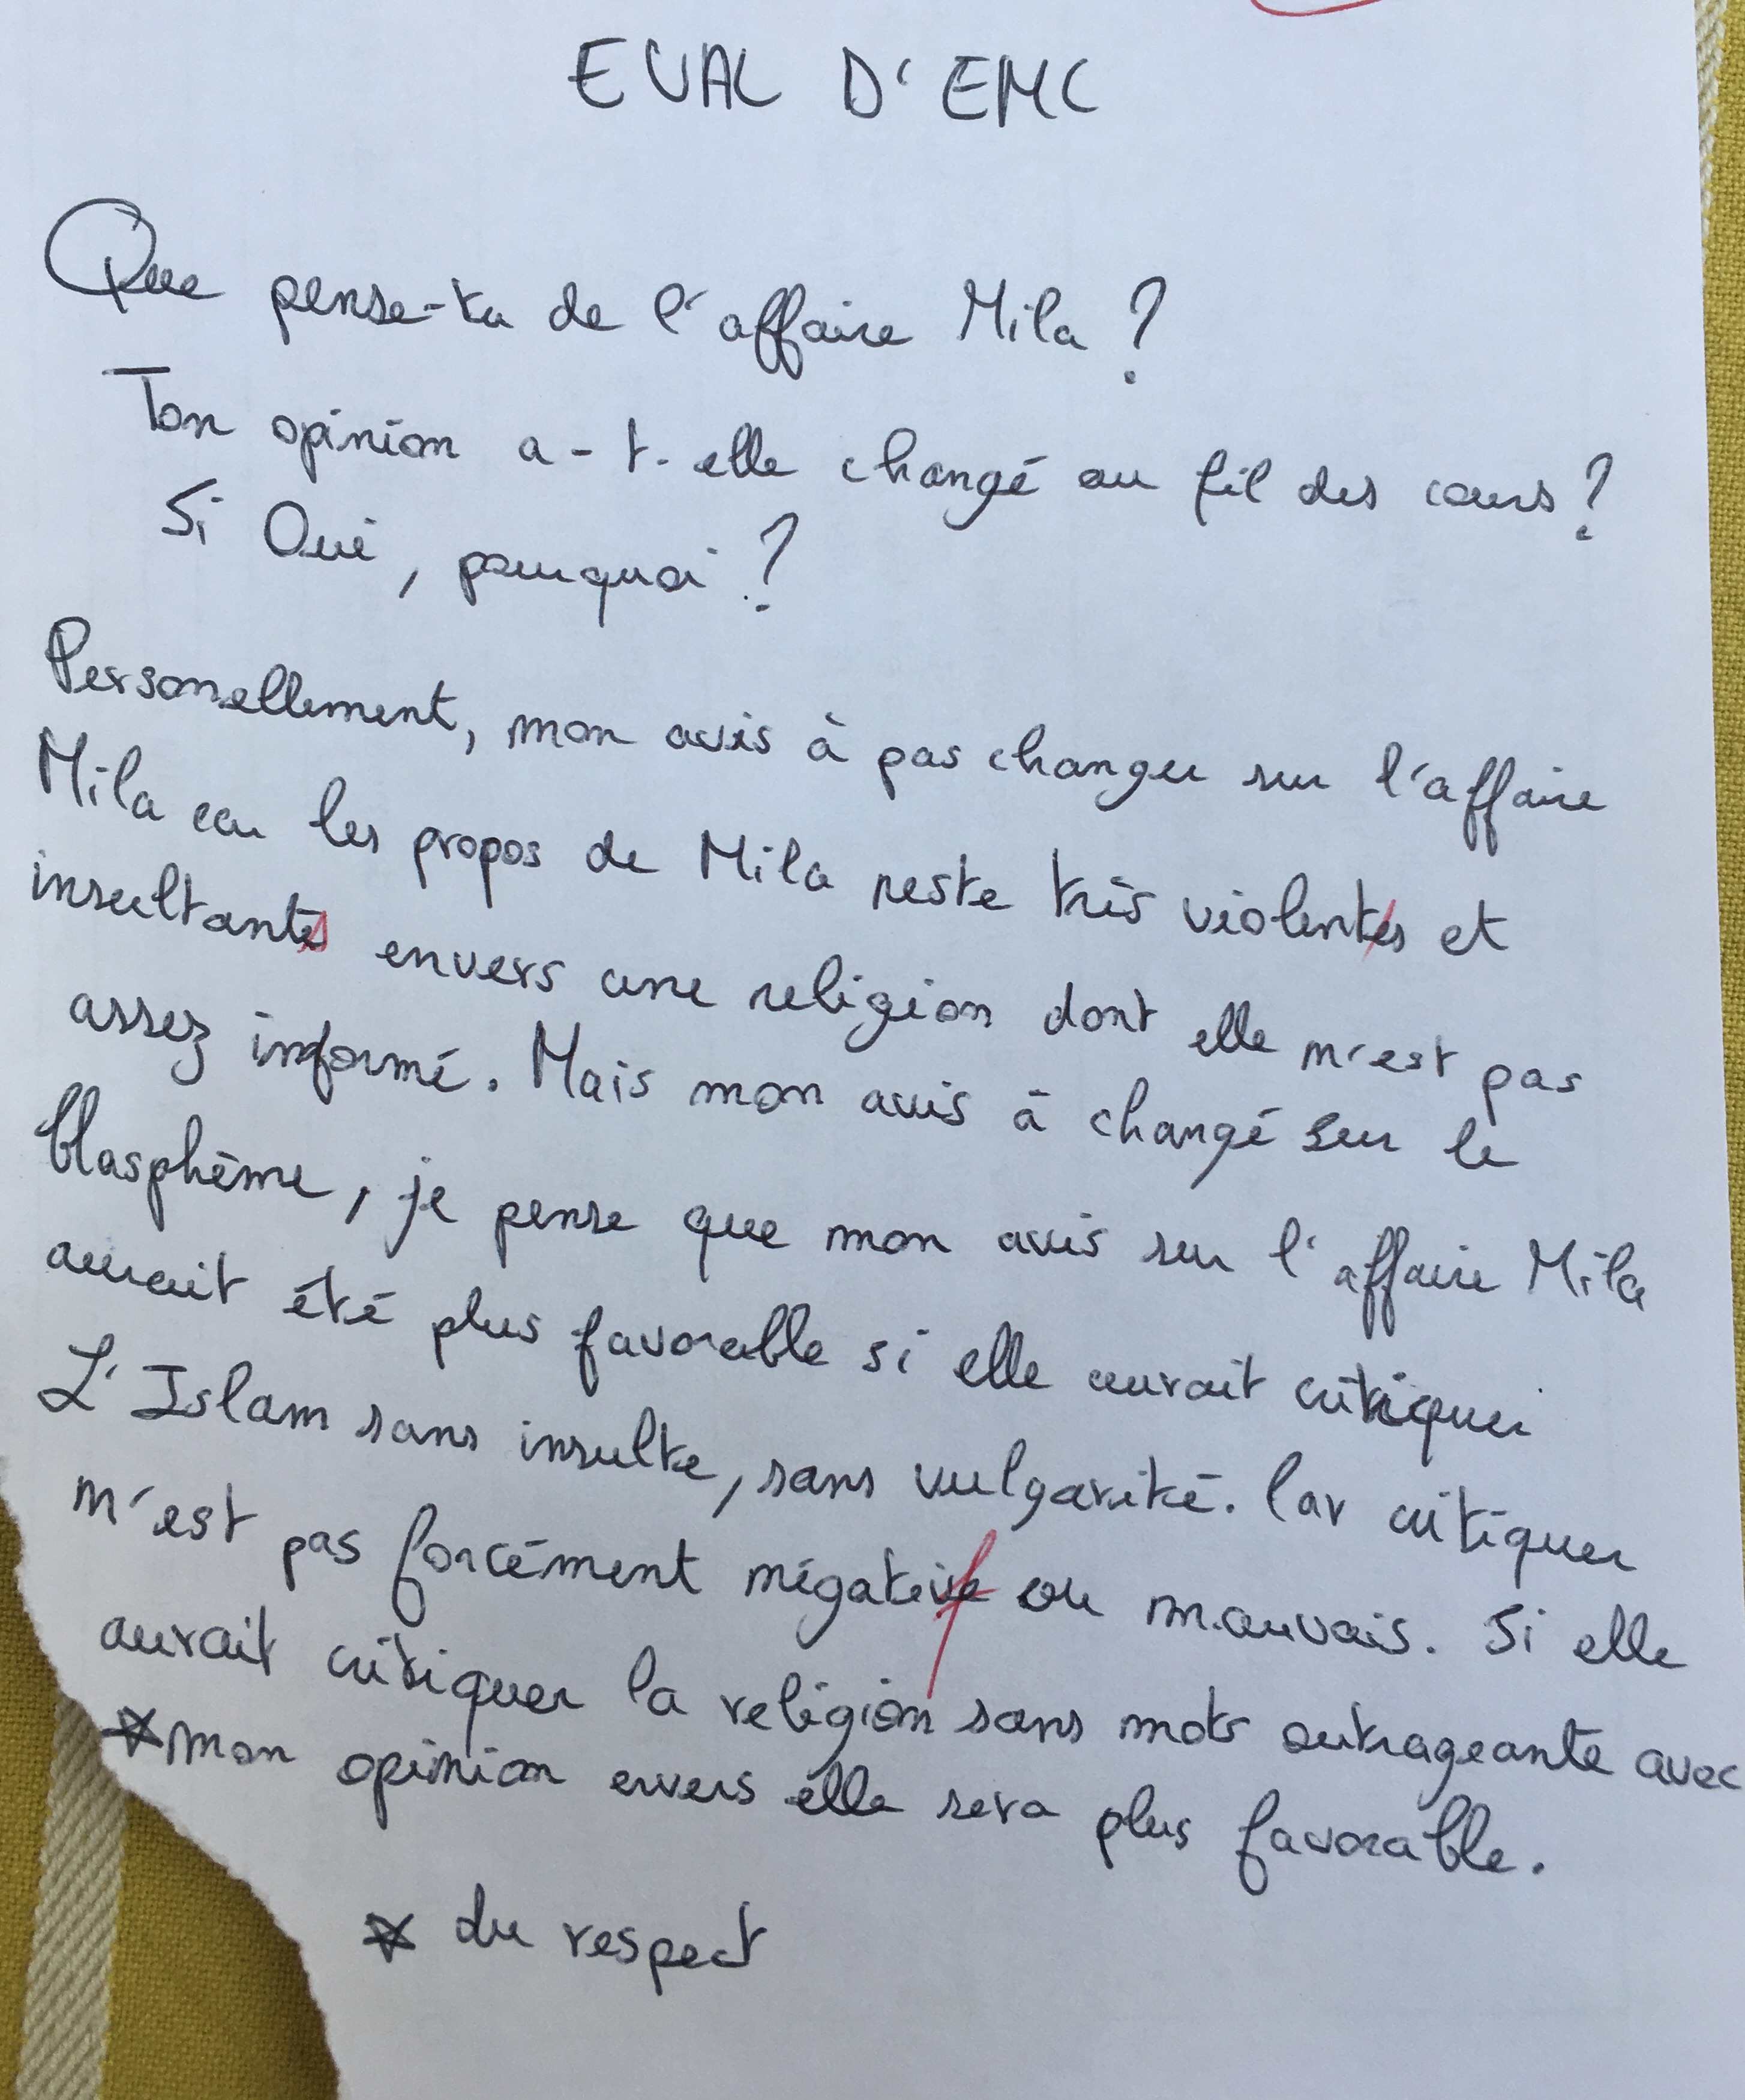 EVAL D'EMC
Que pense-tu de l'affaire Mila ?
Ton opinion a-t-elle changé au fil des cours ?
Si Oui, pourquoi ?
Personellement, mon avis à pas changer sur l'affaire
Mila car les propos de Mila reste très violentes et
insultants envers une religion dont elle n'est pas
assez informé. Mais mon avis à changé sur le
blasphème, je pense que mon avis sur l'affaire Mila
aurait été plus favorable si elle aurait critiquer
L'Islam sans insulte, sans vulgarité. Car critiquer
n'est pas forcément négative ou mauvais. Si elle
aurait critiquer la religion sans mots outrageante avec
* mon opinion envers elle sera plus favorable.
* du respect